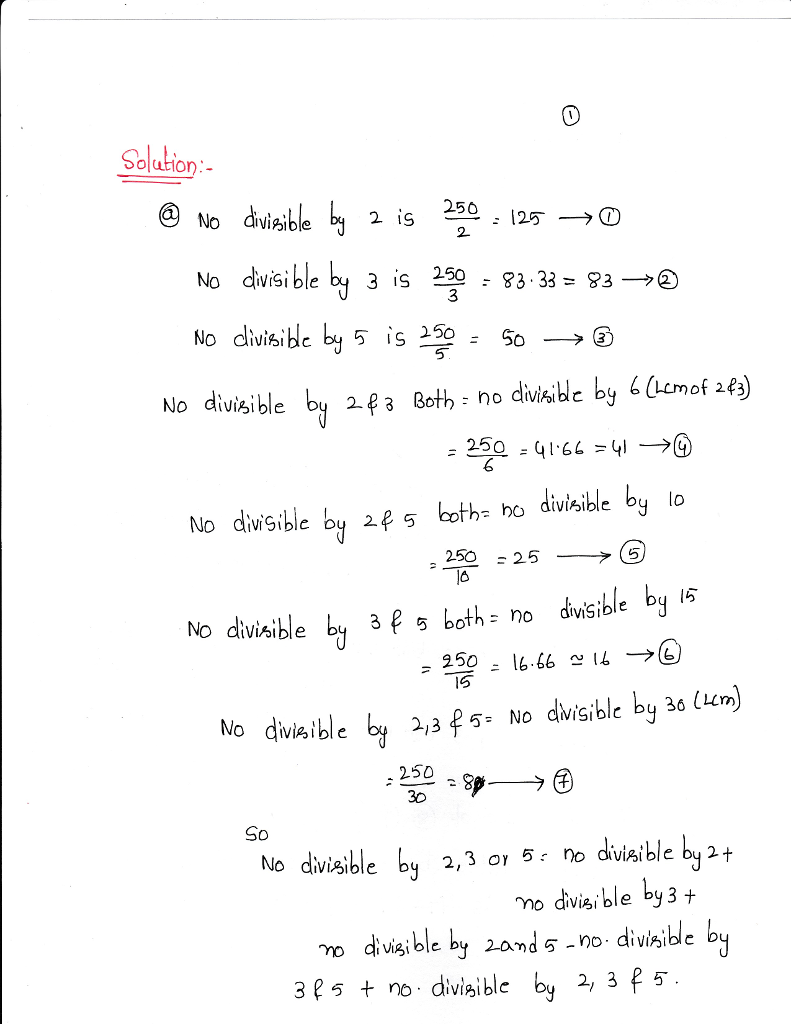 ①
Solution:-
ⓐ No divisible by 2 is 250/2 = 125 → ①
No divisible by 3 is 250/3 = 83.33 = 83 → ②
No divisible by 5 is 250/5 = 50 → ③
No divisible by 2 & 3 Both = no divisible by 6 (Lcm of 2&3)
= 250/6 = 41.66 = 41 → ④
No divisible by 2 & 5 both = no divisible by 10
= 250/10 = 25 → ⑤
No divisible by 3 & 5 both = no divisible by 15
= 250/15 = 16.66 ≃ 16 → ⑥
No divisible by 2,3 & 5 = No divisible by 30 (Lcm)
= 250/30 = 8 → ⑦
So
No divisible by 2,3 or 5 = no divisible by 2 +
no divisible by 3 +
no divisible by 2 and 5 - no. divisible by
3 & 5 + no. divisible by 2, 3 & 5.